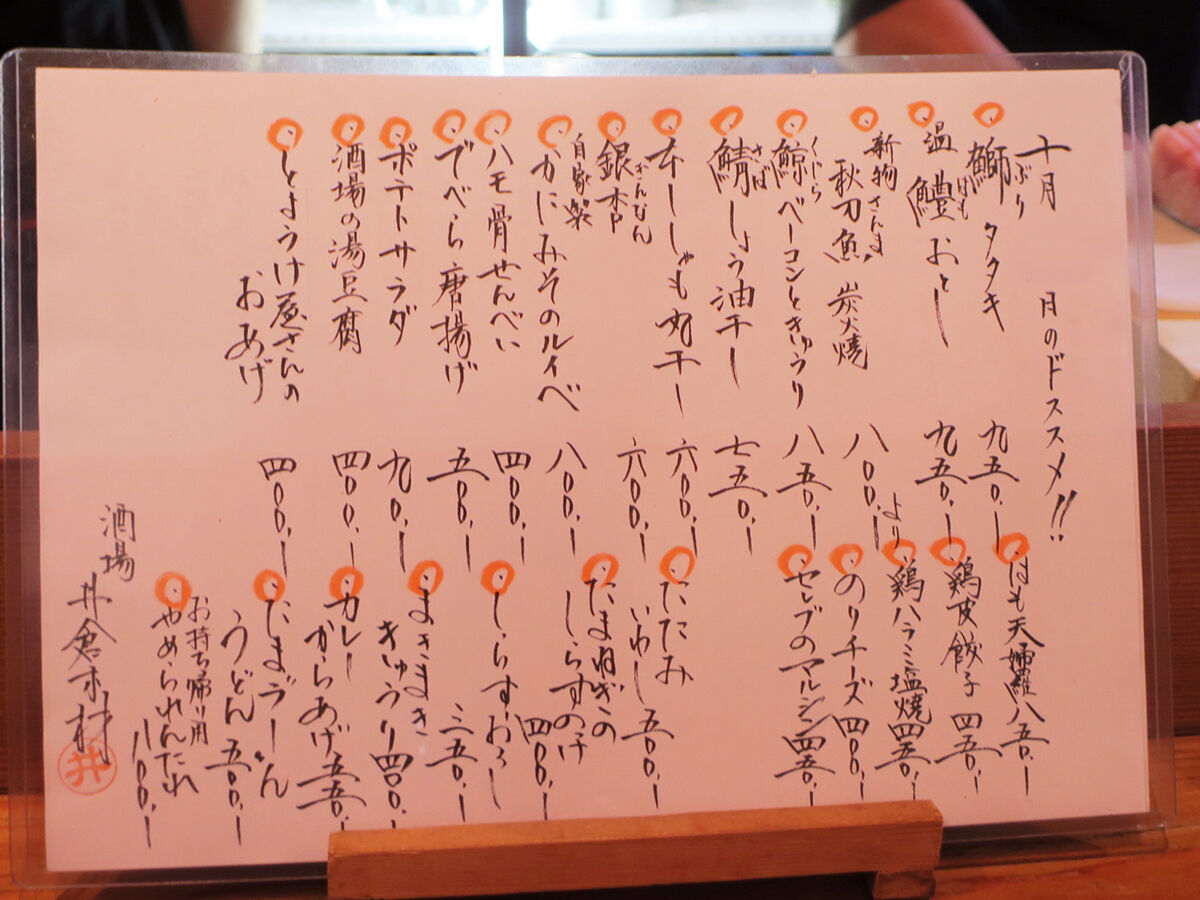 十月 月のドスメ!!
鰤 タタキ 九五〇.ー
ぶり
鱧 おとし 九五〇.ー
はも
新物 秋刀魚 炭火焼 八〇〇.ーより
さんま
鯨ベーコンときゅうり 八五〇.ー
くじら
鯖しょう油干し 七五〇.ー
さば
本ししゃも丸干し 六〇〇.ー
銀杏 六〇〇.ー
ぎんなん
自家製
かにみそのルイベ 八〇〇.ー
ハモ骨せんべい 四〇〇.ー
でべら唐揚げ 五〇〇.ー
ポテトサラダ 九〇.ー
酒場の湯豆腐 四〇〇.ー
とようけ屋さんの
おあげ 四〇〇.ー
はも天婦羅 八五〇.ー
鶏皮餃子 四五〇.ー
鶏ハラミ塩焼 四五〇.ー
のりチーズ 四〇〇.ー
セレブのマルシン 四五〇.ー
たたみ
いわし 五〇〇.ー
たまねぎの
しらすのけ 四〇〇.ー
しらすおろし 三五〇.ー
まきまき
きゅうり 四〇〇.ー
カレー
からあげ 五五〇.ー
たまごーん
うどん 五〇〇.ー
お持ち帰り用
やめられんたれ
八〇〇.ー
酒場
井倉木材
井